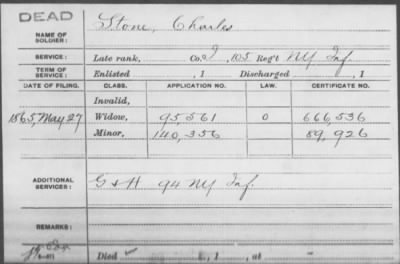 DEAD
NAME OF SOLDIER: Stone, Charles
SERVICE: Late rank, Co. I, 105 Reg't NY Inf.
TERM OF SERVICE: Enlisted , 1 Discharged , 1
DATE OF FILING. CLASS. APPLICATION NO. LAW. CERTIFICATE NO.
Invalid,
1865, May 27 Widow, 95,561 O 666,536
Minor, 140,356 89,926
ADDITIONAL SERVICES: G & H 94 NY Inf.
REMARKS:
Died , 1 , at